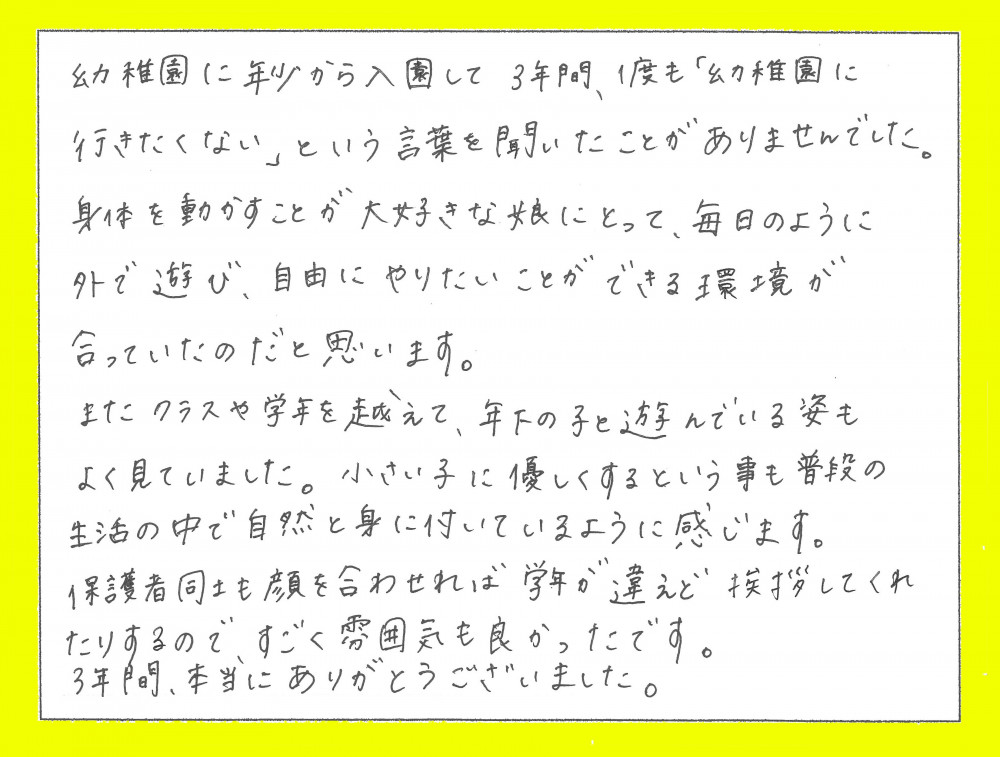 幼稚園に年少から入園して3年間、1度も「幼稚園に
行きたくない」という言葉を聞いたことがありませんでした。
身体を動かすことが大好きな娘にとって、毎日のように
外で遊び、自由にやりたいことができる環境が
合っていたのだと思います。
またクラスや学年を越えて、年下の子と遊んでいる姿も
よく見ていました。小さい子に優しくするという事も普段の
生活の中で自然と身に付いているように感じます。
保護者同士も顔を合わせれば学年が違えど挨拶してくれ
たりするので、すごく雰囲気も良かったです。
3年間、本当にありがとうございました。